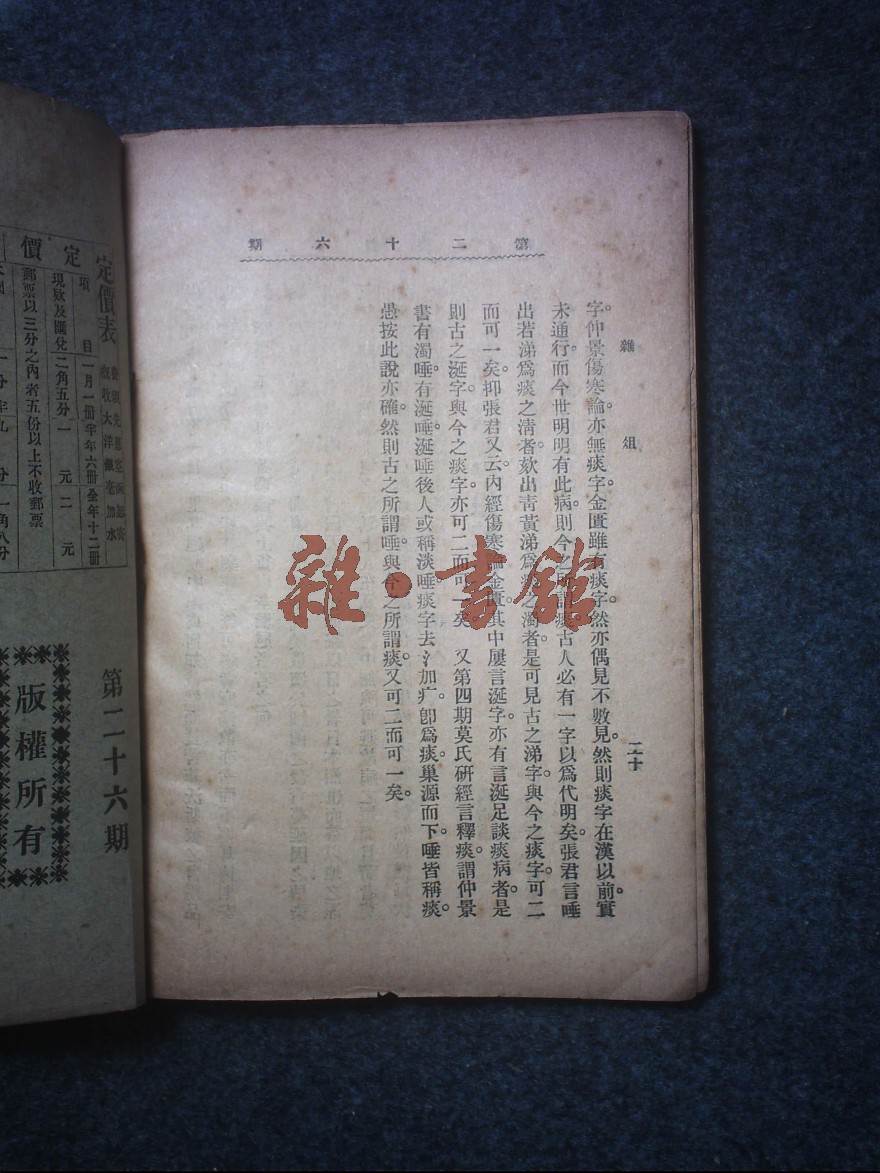 第二十六期
雜俎
二十
字。仲景傷寒論。亦無痰字。金匱雖有痰字。然亦偶見不數見。然則痰字在漢以前。實
未通行。而今世明明有此病。則今之所謂痰。古人必有一字以爲代明矣。張君言唾
出若涕。爲痰之淸者。欬出靑黃涕。爲痰之濁者。是可見古之涕字。與今之痰字。可二
而可一矣。抑張君又云。內經傷寒論金匱。其中屢言涎字。亦有言涎足談痰病者。是
則古之涎字。與今之痰字。亦可二而可一矣。 又第四期莫氏硏經言釋痰。謂仲景
書有濁唾。有涎唾。涎唾後人或稱淡唾。痰字去氵加疒。卽爲痰。巢源而下。唾皆稱痰。
愚按此說亦確。然則古之所謂唾。與今之所謂痰。又可二而可一矣。
雜·書館
定價表
項目
一月一冊
半年六冊
全年十二冊
定價
現欵及匯兌
二角五分
一元
二元
郵票以三分之內者五份以上不收郵票
第二十六期
版權所有